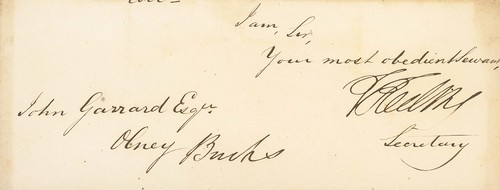 I am, Sir,
Your most obedient Servant,
John Garrard Esqre
Olney Bucks
Secretary